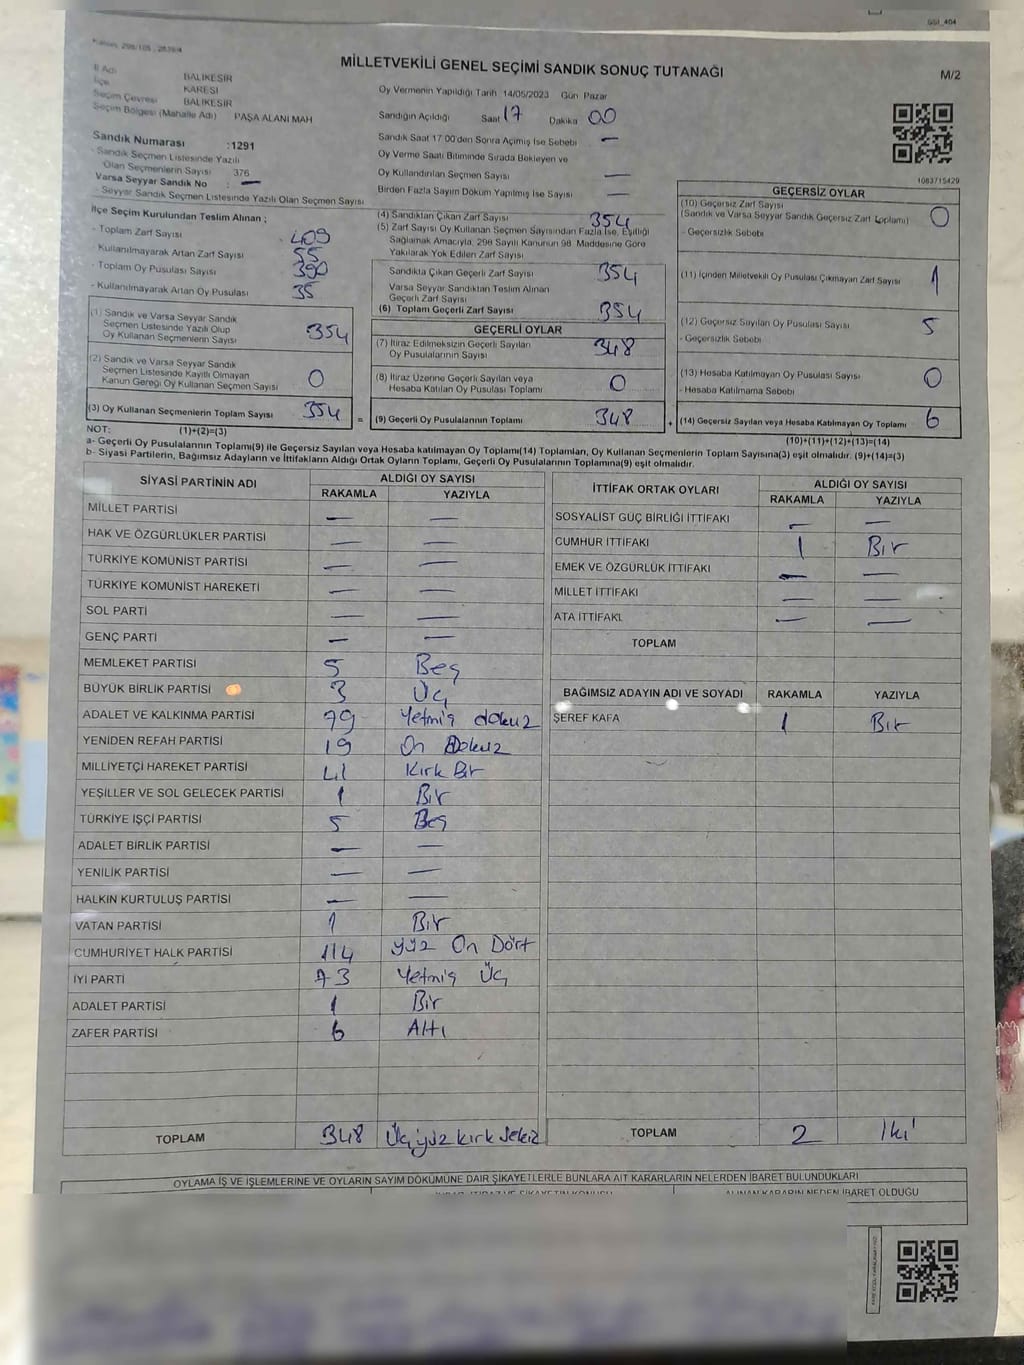 GSI_404
MİLLETVEKİLİ GENEL SEÇİMİ SANDIK SONUÇ TUTANAĞI
M/2
İl Adı BALIKESİR
İlçe KARESİ
Seçim Çevresi BALIKESİR
Seçim Bölgesi (Mahalle Adı) PAŞA ALANI MAH
Oy Vermenin Yapıldığı Tarih 14/05/2023 Gün Pazar
Sandığın Açıldığı Saat 17 Dakika 00
Sandık Saat 17 00'den Sonra Açımış İse Sebebi —
Oy Verme Saati Bitiminde Sırada Bekleyen ve
Oy Kullandırılan Seçmen Sayısı —
Birden Fazla Sayım Döküm Yapılmış İse Sayısı —
Sandık Numarası :1291
- Sandık Seçmen Listesinde Yazılı
Olan Seçmenlerin Sayısı 376
Varsa Seyyar Sandık No : —
- Seyyar Sandık Seçmen Listesinde Yazılı Olan Seçmen Sayısı
İlçe Seçim Kurulundan Teslim Alınan ;
- Toplam Zarf Sayısı 409
- Kullanılmayarak Artan Zarf Sayısı 55
- Toplam Oy Pusulası Sayısı 390
- Kullanılmayarak Artan Oy Pusulası 35
(1) Sandık ve Varsa Seyyar Sandık
Seçmen Listesinde Yazılı Olup
Oy Kullanan Seçmenlerin Sayısı 354
(2) Sandık ve Varsa Seyyar Sandık
Seçmen Listesinde Kayıtlı Olmayan
Kanun Gereği Oy Kullanan Seçmen Sayısı 0
(3) Oy Kullanan Seçmenlerin Toplam Sayısı 354
(4) Sandıktan Çıkan Zarf Sayısı 354
(5) Zarf Sayısı Oy Kullanan Seçmen Sayısından Fazla İse, Eşitliği
Sağlamak Amacıyla, 298 Sayılı Kanunun 98. Maddesine Göre
Yakılarak Yok Edilen Zarf Sayısı
Sandıkta Çıkan Geçerli Zarf Sayısı 354
Varsa Seyyar Sandıktan Teslim Alınan
Geçerli Zarf Sayısı
(6) Toplam Geçerli Zarf Sayısı 354
GEÇERLİ OYLAR
(7) İtiraz Edilmeksizin Geçerli Sayılan
Oy Pusulalarının Sayısı 348
(8) İtiraz Üzerine Geçerli Sayılan veya
Hesaba Katılan Oy Pusulası Toplamı 0
= (9) Geçerli Oy Pusulalarının Toplamı 348
1083715429
GEÇERSİZ OYLAR
(10) Geçersiz Zarf Sayısı
(Sandık ve Varsa Seyyar Sandık Geçersiz Zarf Toplamı) 0
- Geçersizlik Sebebi
(11) İçinden Milletvekili Oy Pusulası Çıkmayan Zarf Sayısı 1
(12) Geçersiz Sayılan Oy Pusulası Sayısı 5
- Geçersizlik Sebebi
(13) Hesaba Katılmayan Oy Pusulası Sayısı 0
- Hesaba Katılmama Sebebi
+ (14) Geçersiz Sayılan veya Hesaba Katılmayan Oy Toplamı 6
NOT: (1)+(2)=(3)
(10)+(11)+(12)+(13)=(14)
a- Geçerli Oy Pusulalarının Toplamı(9) ile Geçersiz Sayılan veya Hesaba katılmayan Oy Toplamı(14) Toplamları, Oy Kullanan Seçmenlerin Toplam Sayısına(3) eşit olmalıdır. (9)+(14)=(3)
b- Siyasi Partilerin, Bağımsız Adayların ve İttifakların Aldığı Ortak Oyların Toplamı, Geçerli Oy Pusulalarının Toplamına(9) eşit olmalıdır.
SİYASİ PARTİNİN ADI ALDIĞI OY SAYISI
RAKAMLA YAZIYLA
MİLLET PARTİSİ — —
HAK VE ÖZGÜRLÜKLER PARTİSİ — —
TÜRKİYE KOMÜNİST PARTİSİ — —
TÜRKİYE KOMÜNİST HAREKETİ — —
SOL PARTİ — —
GENÇ PARTİ — —
MEMLEKET PARTİSİ 5 Beş
BÜYÜK BİRLİK PARTİSİ 3 Üç
ADALET VE KALKINMA PARTİSİ 79 Yetmiş dokuz
YENİDEN REFAH PARTİSİ 19 On Dokuz
MİLLİYETÇİ HAREKET PARTİSİ 41 Kırk Bir
YEŞİLLER VE SOL GELECEK PARTİSİ 1 Bir
TÜRKİYE İŞÇİ PARTİSİ 5 Beş
ADALET BİRLİK PARTİSİ — —
YENİLİK PARTİSİ — —
HALKIN KURTULUŞ PARTİSİ — —
VATAN PARTİSİ 1 Bir
CUMHURİYET HALK PARTİSİ 114 yüz On Dört
İYİ PARTİ 73 Yetmiş Üç
ADALET PARTİSİ 1 Bir
ZAFER PARTİSİ 6 Altı
TOPLAM 348 Üçyüz kırk sekiz
İTTİFAK ORTAK OYLARI ALDIĞI OY SAYISI
RAKAMLA YAZIYLA
SOSYALİST GÜÇ BİRLİĞİ İTTİFAKI — —
CUMHUR İTTİFAKI 1 Bir
EMEK VE ÖZGÜRLÜK İTTİFAKI — —
MİLLET İTTİFAKI — —
ATA İTTİFAKI — —
TOPLAM
BAĞIMSIZ ADAYIN ADI VE SOYADI RAKAMLA YAZIYLA
ŞEREF KAFA 1 Bir
TOPLAM 2 İki
OYLAMA İŞ VE İŞLEMLERİNE VE OYLARIN SAYIM DÖKÜMÜNE DAİR ŞİKAYETLERLE BUNLARA AİT KARARLARIN NELERDEN İBARET BULUNDUKLARI
ALINAN KARARIN NEDEN İBARET OLDUĞU